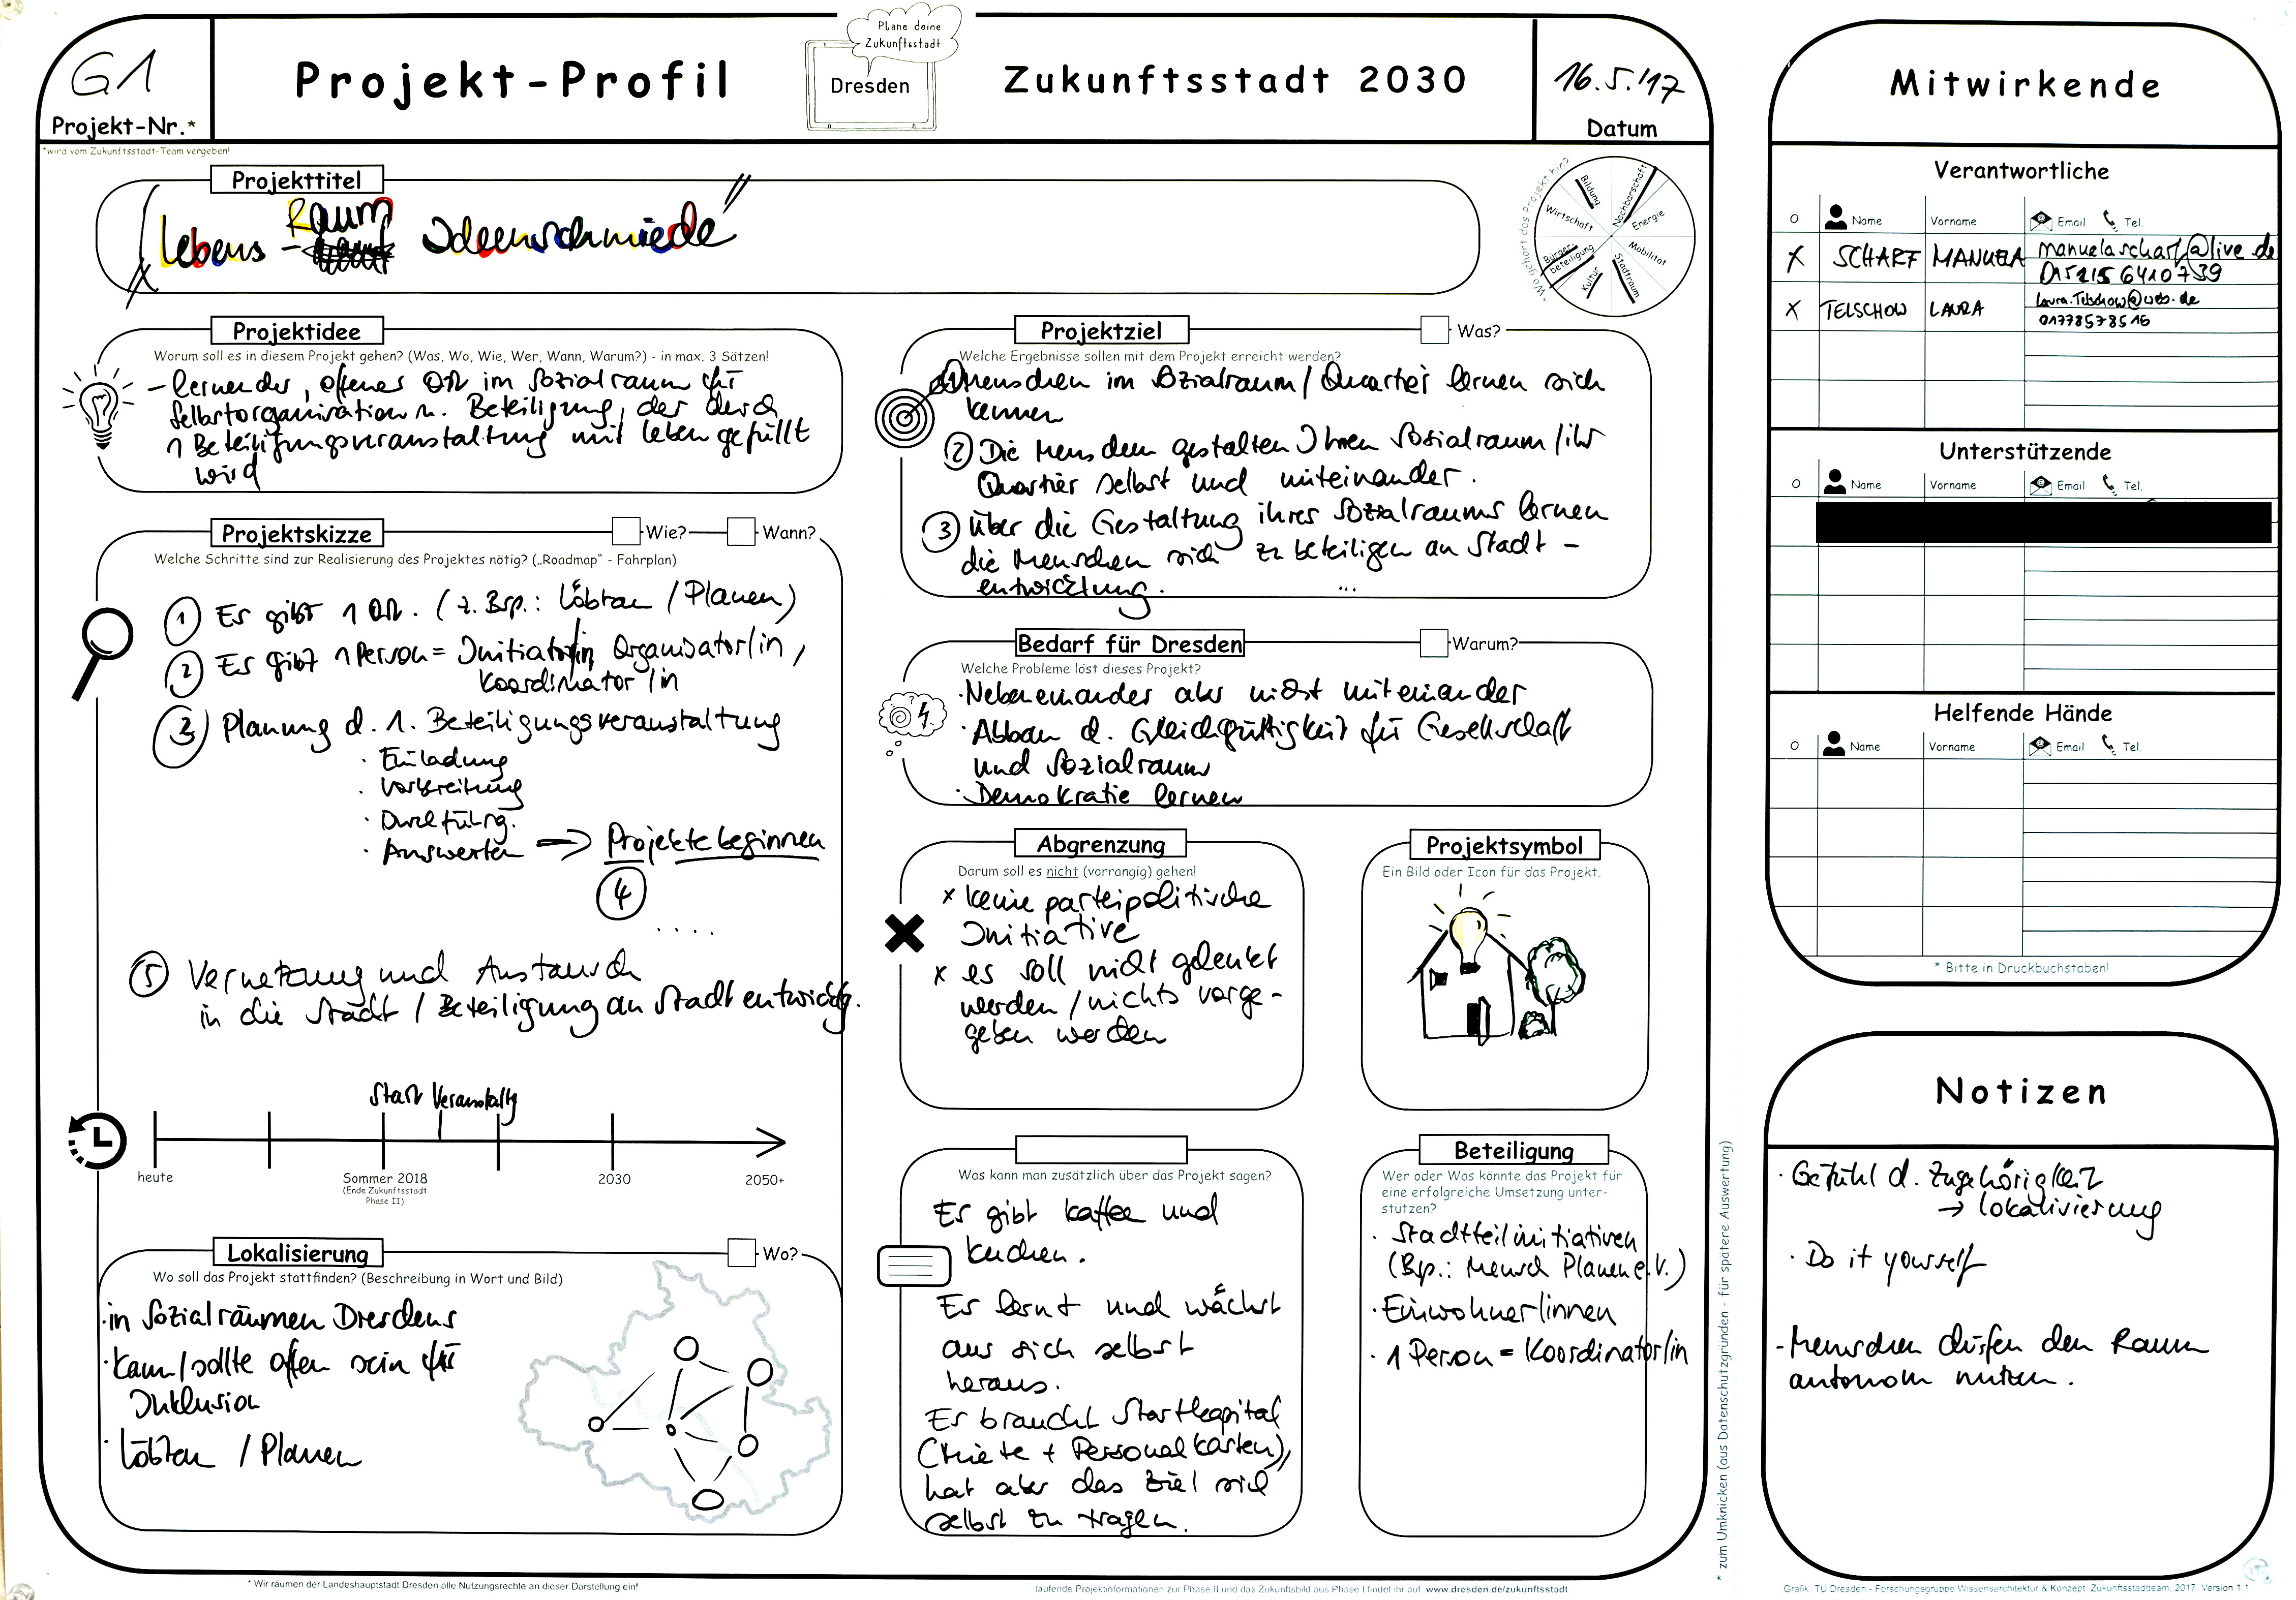 G1
Projekt-Nr.*
*wird vom Zukunftsstadt-Team vergeben!
Projekt-Profil
Plane deine
Zukunftsstadt
Dresden
Zukunftsstadt 2030
16.5.'17
Datum
Projekttitel
"Lebens-Raum Ideenschmiede"
*Wo gehört das Projekt hin?
Bildung
Nachbarschaft
Wirtschaft
Energie
Bürger-
beteiligung
Mobilität
Kultur
Stadtraum
Projektidee
Worum soll es in diesem Projekt gehen? (Was, Wo, Wie, Wer, Wann, Warum?) - in max. 3 Sätzen!
- lernender, offener Ort im Sozialraum für
Selbstorganisation u. Beteiligung, der durch
1 Beteiligungsveranstaltung mit Leben gefüllt
wird
Projektskizze
Wie?
Wann?
Welche Schritte sind zur Realisierung des Projektes nötig? („Roadmap" - Fahrplan)
① Es gibt 1 Ort. (z. Bsp.: Löbtau / Plauen)
② Es gibt 1 Person = Initiator/in, Organisator/in,
Koordinator/in
③ Planung d. 1. Beteiligungsveranstaltung
· Einladung
· Vorbereitung
· Durchführg.
· Auswerten ⇒ Projekte beginnen
④
....
⑤ Vernetzung und Austausch
in die Stadt / Beteiligung an Stadtentwicklg.
Start Veranstaltg
heute
Sommer 2018
(Ende Zukunftsstadt
Phase II)
2030
2050+
Lokalisierung
Wo?
Wo soll das Projekt stattfinden? (Beschreibung in Wort und Bild)
· in Sozialräumen Dresdens
· kann/sollte offen sein für
Inklusion
· Löbtau / Plauen
Projektziel
Was?
Welche Ergebnisse sollen mit dem Projekt erreicht werden?
① Menschen im Sozialraum / Quartier lernen sich
kennen
② Die Menschen gestalten Ihren Sozialraum / ihr
Quartier selbst und miteinander.
③ Über die Gestaltung ihres Sozialraums lernen
die Menschen sich zu beteiligen an Stadt-
entwicklung. ...
Bedarf für Dresden
Warum?
Welche Probleme löst dieses Projekt?
· Nebeneinander aber nicht miteinander
· Abbau d. Gleichgültigkeit für Gesellschaft
und Sozialraum
· Demokratie lernen
Abgrenzung
Darum soll es nicht (vorrangig) gehen!
x keine parteipolitische
Initiative
x es soll nicht gelenkt
werden / nichts vorge-
geben werden
Projektsymbol
Ein Bild oder Icon für das Projekt.
Was kann man zusätzlich über das Projekt sagen?
Es gibt Kaffee und
Kuchen.
Es lernt und wächst
aus sich selbst
heraus.
Es braucht Startkapital
(Miete + Personalkosten),
hat aber das Ziel sich
selbst zu tragen.
Beteiligung
Wer oder Was könnte das Projekt für
eine erfolgreiche Umsetzung unter-
stützen?
· Stadtteilinitiativen
(Bsp.: Mensch Plauen e.V.)
· Einwohner/innen
· 1 Person = Koordinator/in
* Wir räumen der Landeshauptstadt Dresden alle Nutzungsrechte an dieser Darstellung ein!
laufende Projektinformationen zur Phase II und das Zukunftsbild aus Phase I findet ihr auf www.dresden.de/zukunftsstadt
* zum Umknicken (aus Datenschutzgründen - für spätere Auswertung)
Mitwirkende
Verantwortliche
O Name Vorname Email Tel.
X SCHARF MANUELA manuelascharf@live.de
0152156410739
X TELSCHOW LAURA Laura.Telschow@web.de
01778578516
Unterstützende
O Name Vorname Email Tel.
Helfende Hände
O Name Vorname Email Tel.
* Bitte in Druckbuchstaben!
Notizen
· Gefühl d. Zugehörigkeit
→ Lokalisierung
· Do it yourself
- Menschen dürfen den Raum
autonom nutzen.
Grafik: TU Dresden - Forschungsgruppe Wissensarchitektur & Konzept: Zukunftsstadtteam, 2017. Version 1.1